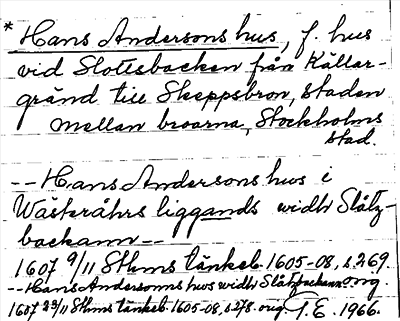 * Hans Andersons hus, f. hus
vid Slottsbacken från Källar-
gränd till Skeppsbron, staden
mellan broarna, Stockholms
stad.
-- Hans Andersons hus i
Wästråhrs liggands widh Slåtz-
backann --
1607 9/11 Sthms tänkeb. 1605-08, s. 269.
-- Hans Andersonns hus widh Slåtzbackann org.
1607 23/11 Sthms tänkeb. 1605-08, s. 278. org. I.E. 1966.